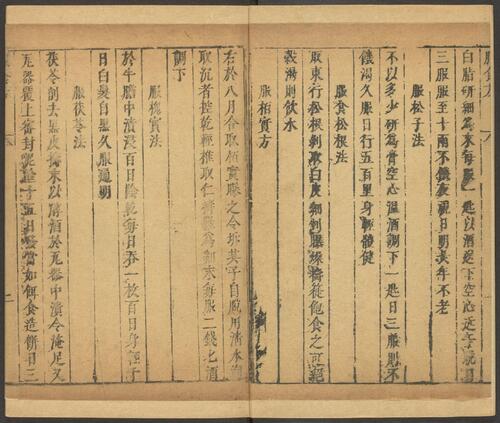 白脂研細為末每服一匙以酒送下空心近午晚日
三服服至十兩不饑夜視目明長年不老
服松子法
不以多少研為膏空心溫酒調下一匙日三服則不
饑渴久服日行五百里身輕體健
服食松根法
取東行松根剝取白皮細剉曝燥擣篩飽食之可絕
穀渴則飲水
服栢實方
右於八月合取栢實曝之令坼其子自脫用清水淘
取沉者控乾輕椎取仁擣羅為細末每服二錢匕酒
調下
服槐實法
於牛膽中漬浸百日陰乾每日吞一枚百日身輕千
日白髮自黑久服通明
服茯苓法
茯苓削去黑皮擣末以醇酒於瓦器中漬令淹足又
瓦器覆上密封泥塗十五日發當如餌食造餅日三